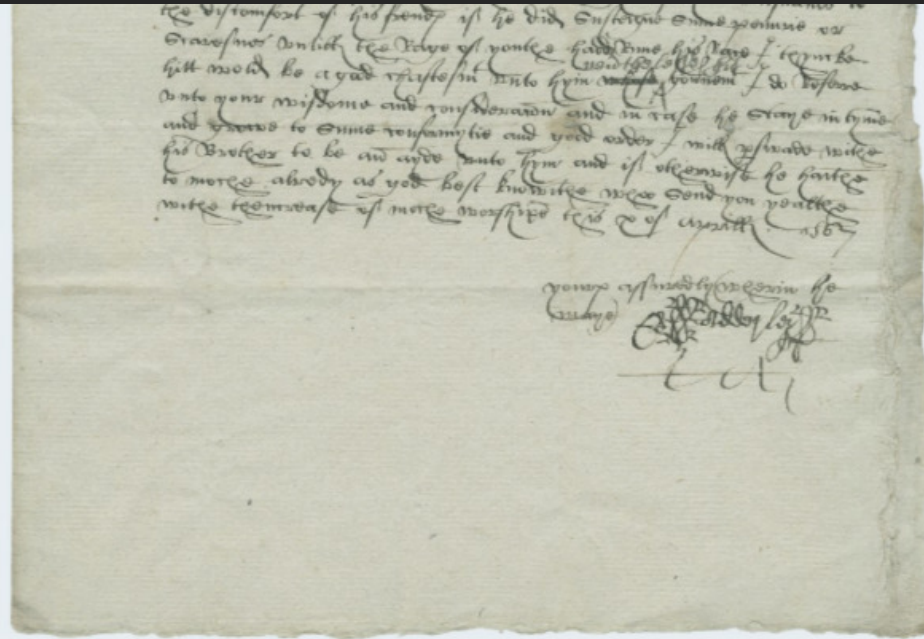 the discomfort of his frendꝭ if he did Susteyne Sume penurie or
Scarsnes untill the Rage of youthe hadd Rune his Race I thyncke
hitt wold be a good chastesm̃t unto hym I do Referre
unto your wisdome and consideracon and in case he Staye in tyme
and growe to Sume conformytie and good order I will ꝑswade withe
his Brother to be an ayde unto hym and if otherwise he hathe
to moche alredy as god best knowithe who Send you healthe
withe thencrease of moche worshipe this x of Aprill 156
youre assuredly wherin he
maye